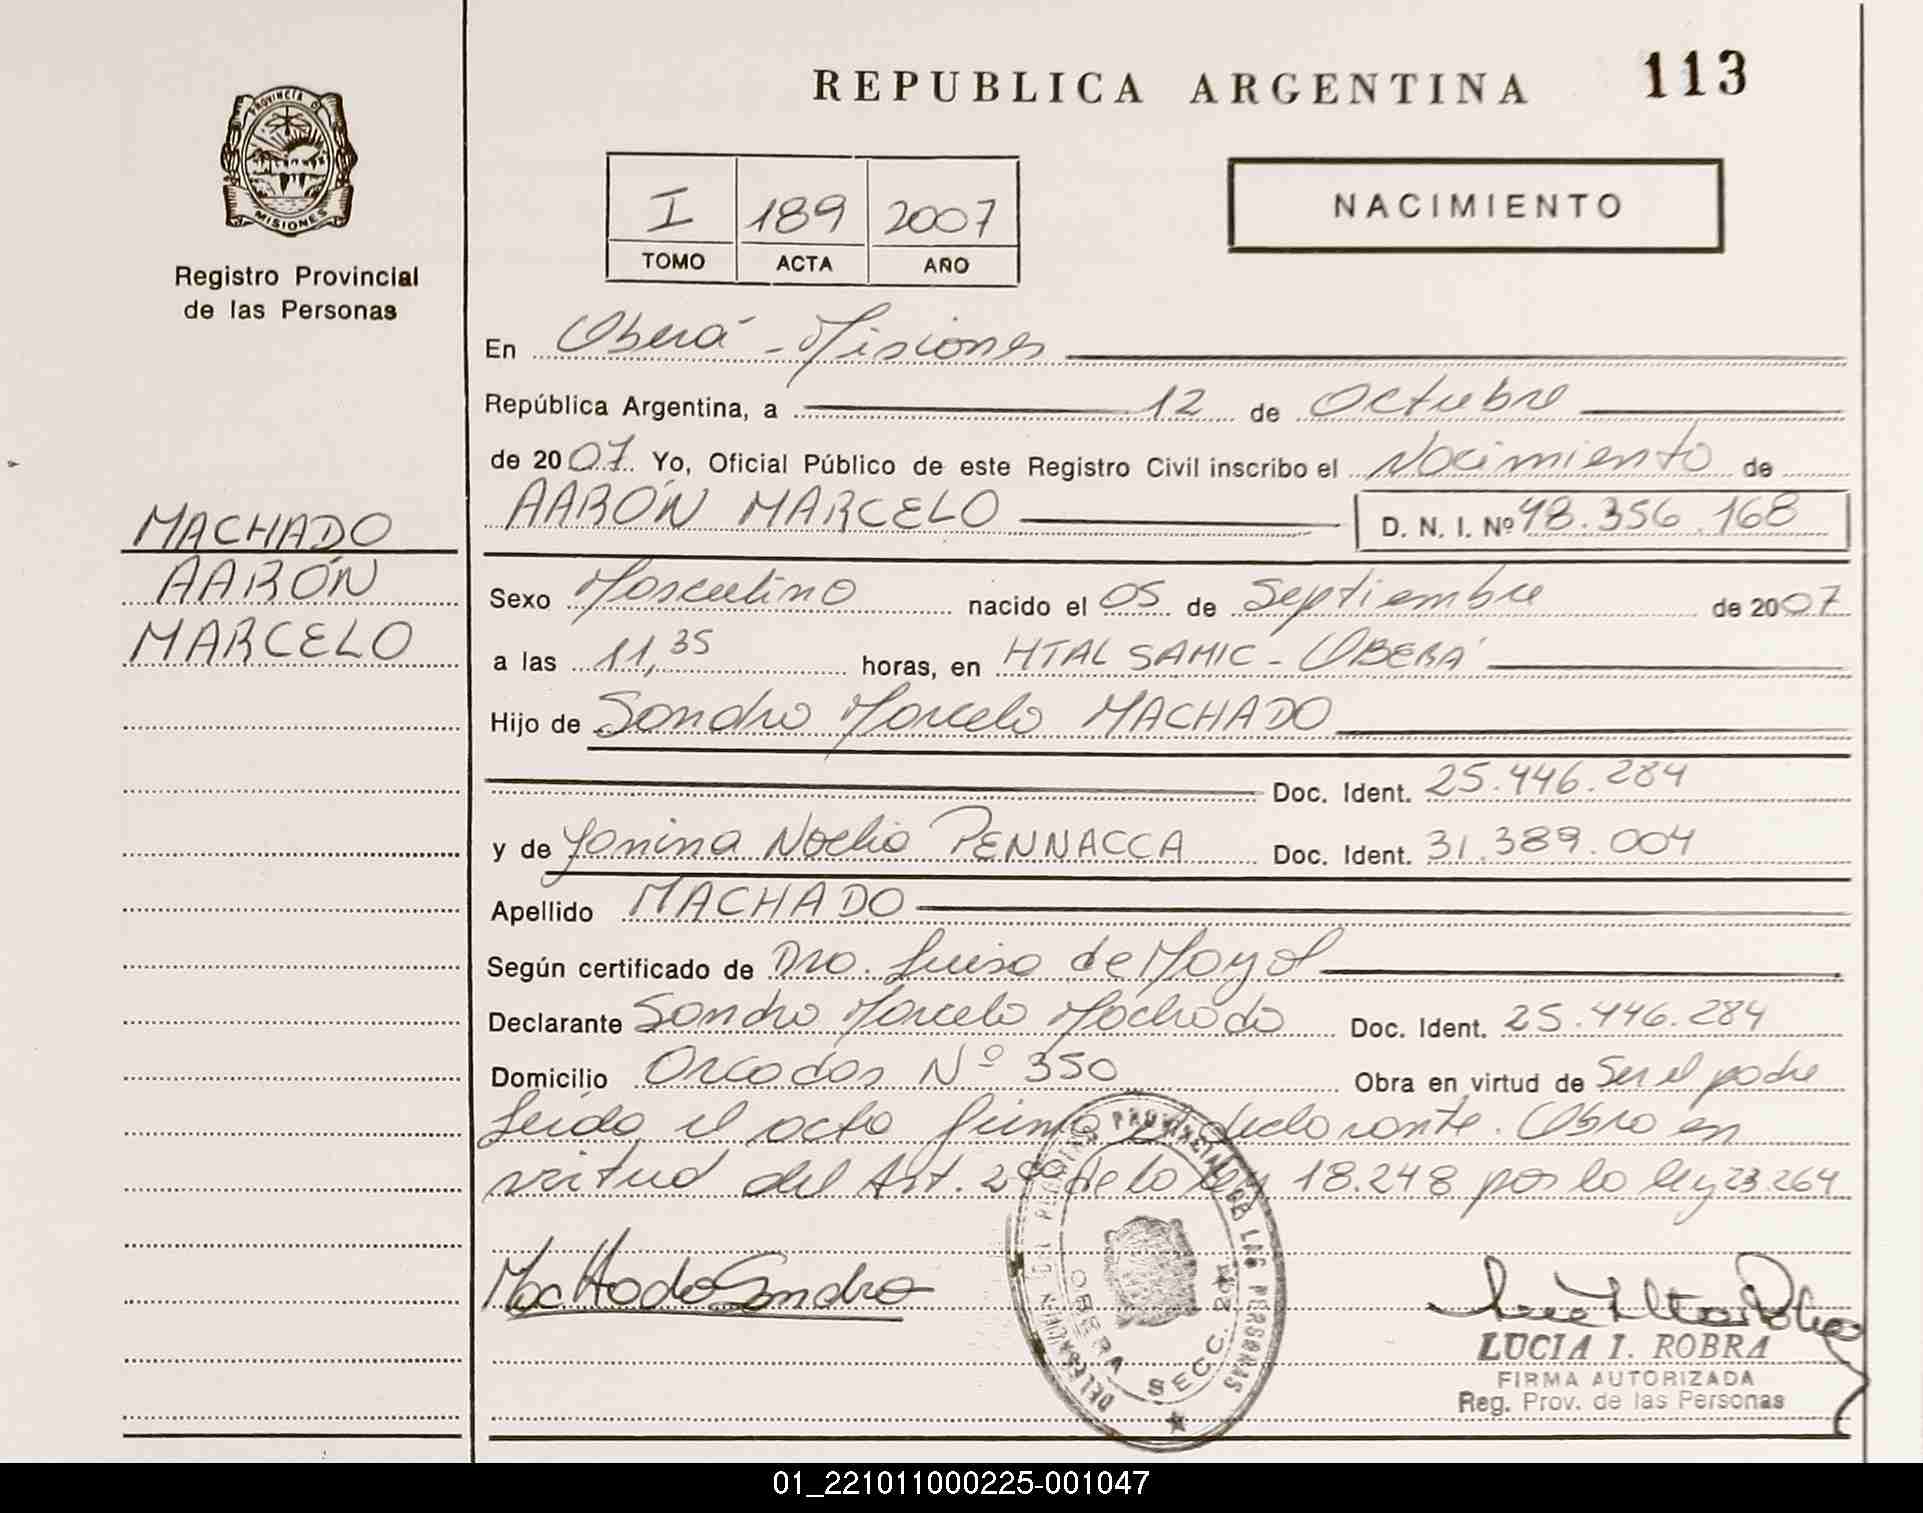 REPUBLICA ARGENTINA 113
PROVINCIA D
MISIONES
Registro Provincial
de las Personas
I 189 2007
TOMO ACTA AÑO
NACIMIENTO
En Oberá - Misiones
República Argentina, a 12 de Octubre
de 2007. Yo, Oficial Público de este Registro Civil inscribo el Nacimiento de
AARÓN MARCELO D. N. I. Nº 48.356.168
MACHADO
AARÓN
MARCELO
Sexo Masculino nacido el 05 de Septiembre de 2007
a las 11,35 horas, en HTAL SAMIC - OBERÁ
Hijo de Sandro Marcelo MACHADO
Doc. Ident. 25.446.284
y de Yanina Noelia PENNACCA Doc. Ident. 31.389.004
Apellido MACHADO
Según certificado de Dra. Luisa de Mayol
Declarante Sandro Marcelo Machado Doc. Ident. 25.446.284
Domicilio Orcadas Nº 350 Obra en virtud de Ser el padre
Leído el acta firma el declarante. Obra en
virtud del Art. 2º de la ley 18.248 por la ley 23.264
Machado Sandro
DELEGACION DEL REGISTRO PROVINCIAL DE LAS PERSONAS
OBERA SECC. 2
LUCIA I. ROBRA
FIRMA AUTORIZADA
Reg. Prov. de las Personas
01_221011000225-001047